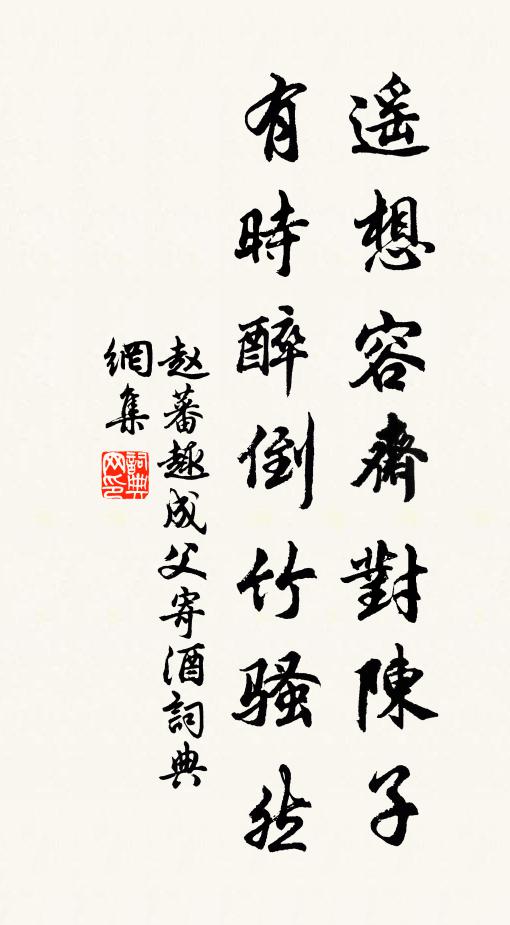 遥想容齋對陳子
有時醉倒竹騷然
赵蕃趣成父寄酒詞典
網集
詞典网印